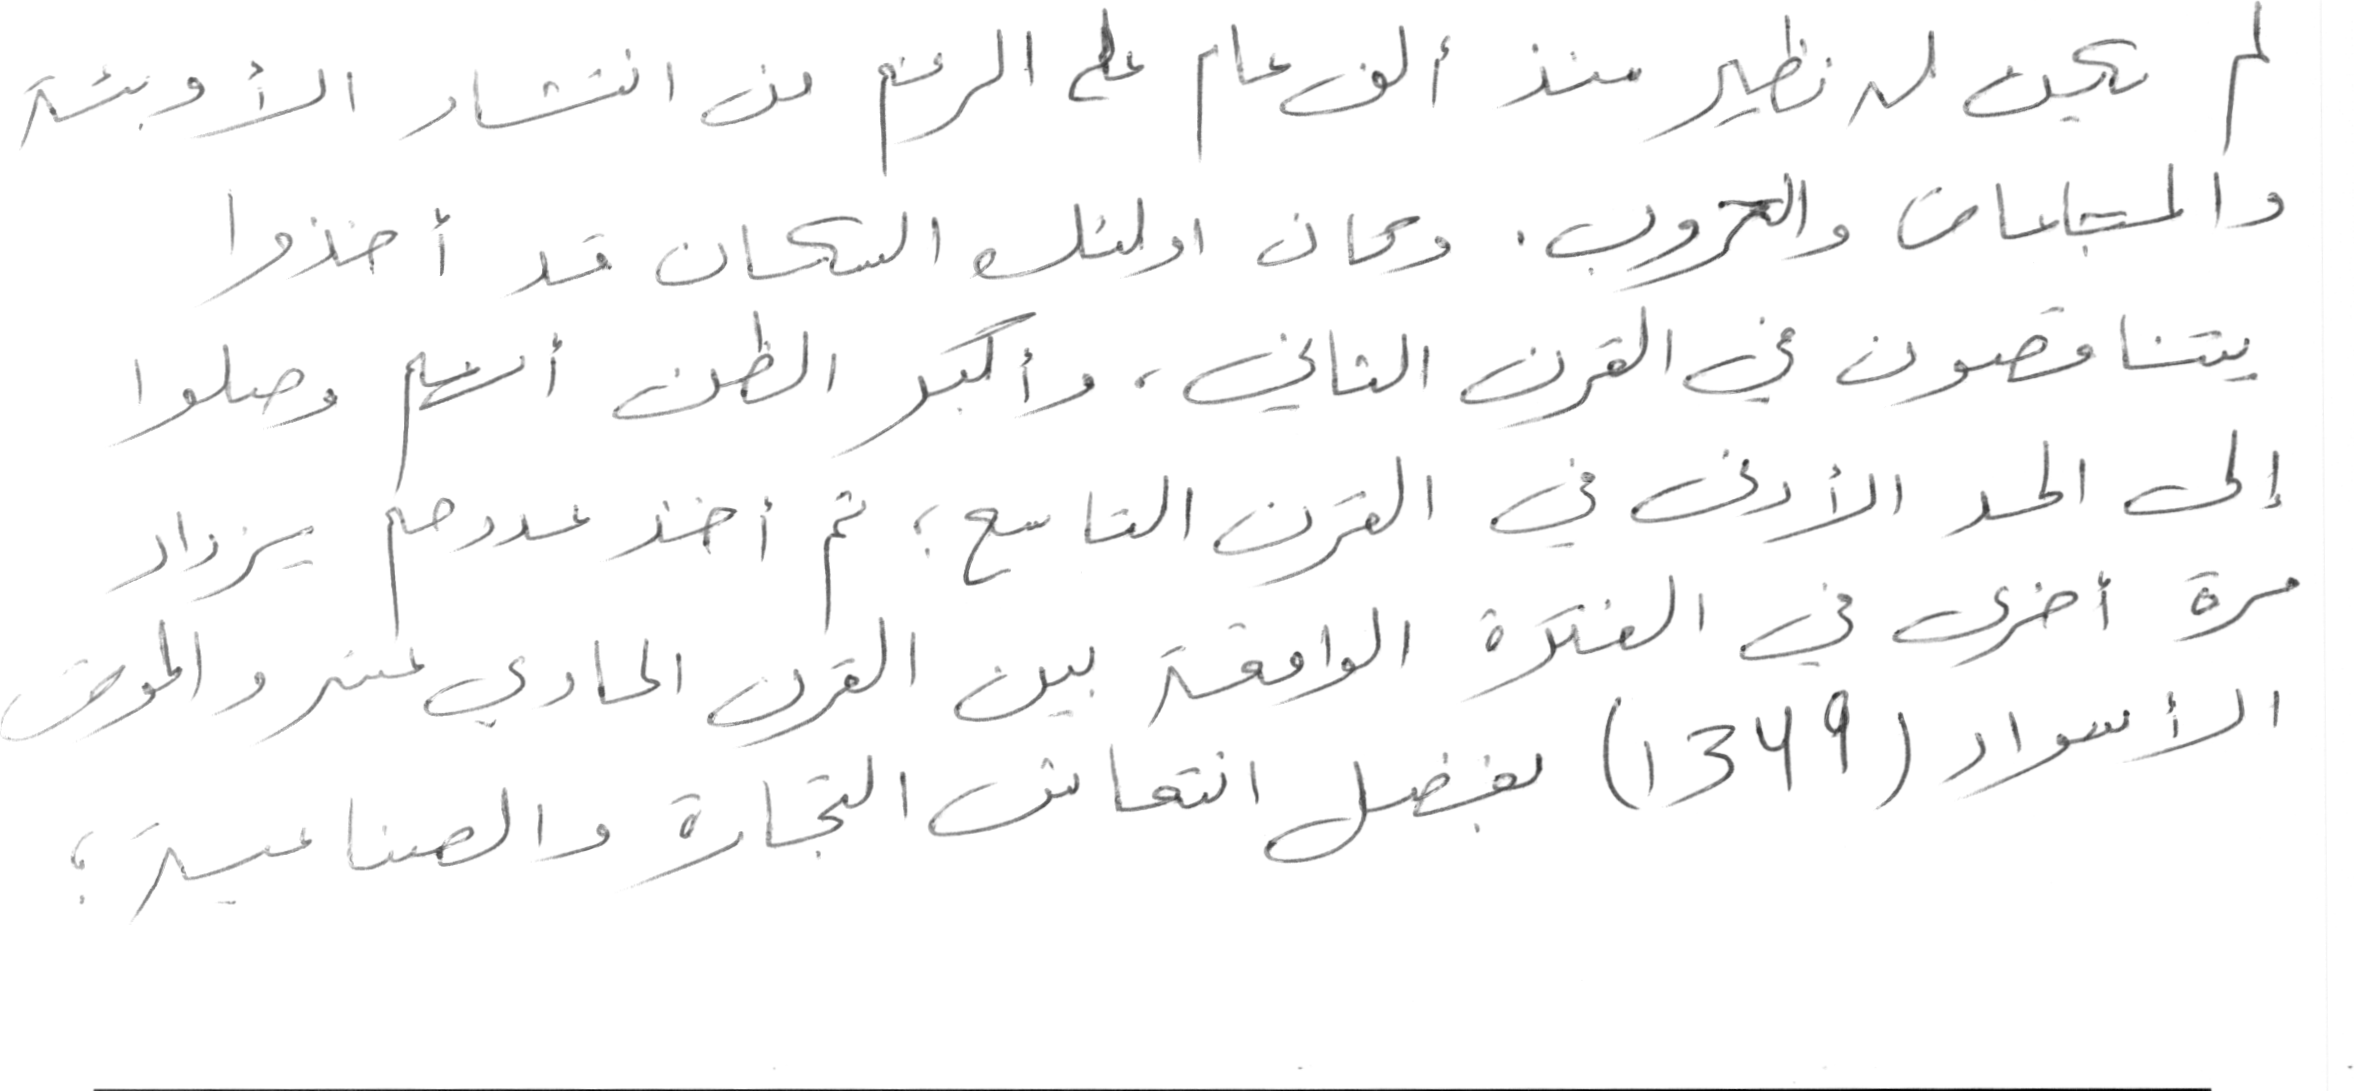 لم يكن له نظير منذ ألف عام على الرغم من انتشار الأوبئة
والمجاعات والحروب. وكان اولئك السكان قد أخذوا
يتناقصون في القرن الثاني، وأكبر الظن أنهم وصلوا
إلى الحد الأدنى في القرن التاسع؛ ثم أخذ عددهم يزداد
مرة أخرى في الفترة الواقعة بين القرن الحادي عشر والموت
الأسواد (1349) بفضل انتعاش التجارة والصناعية؛